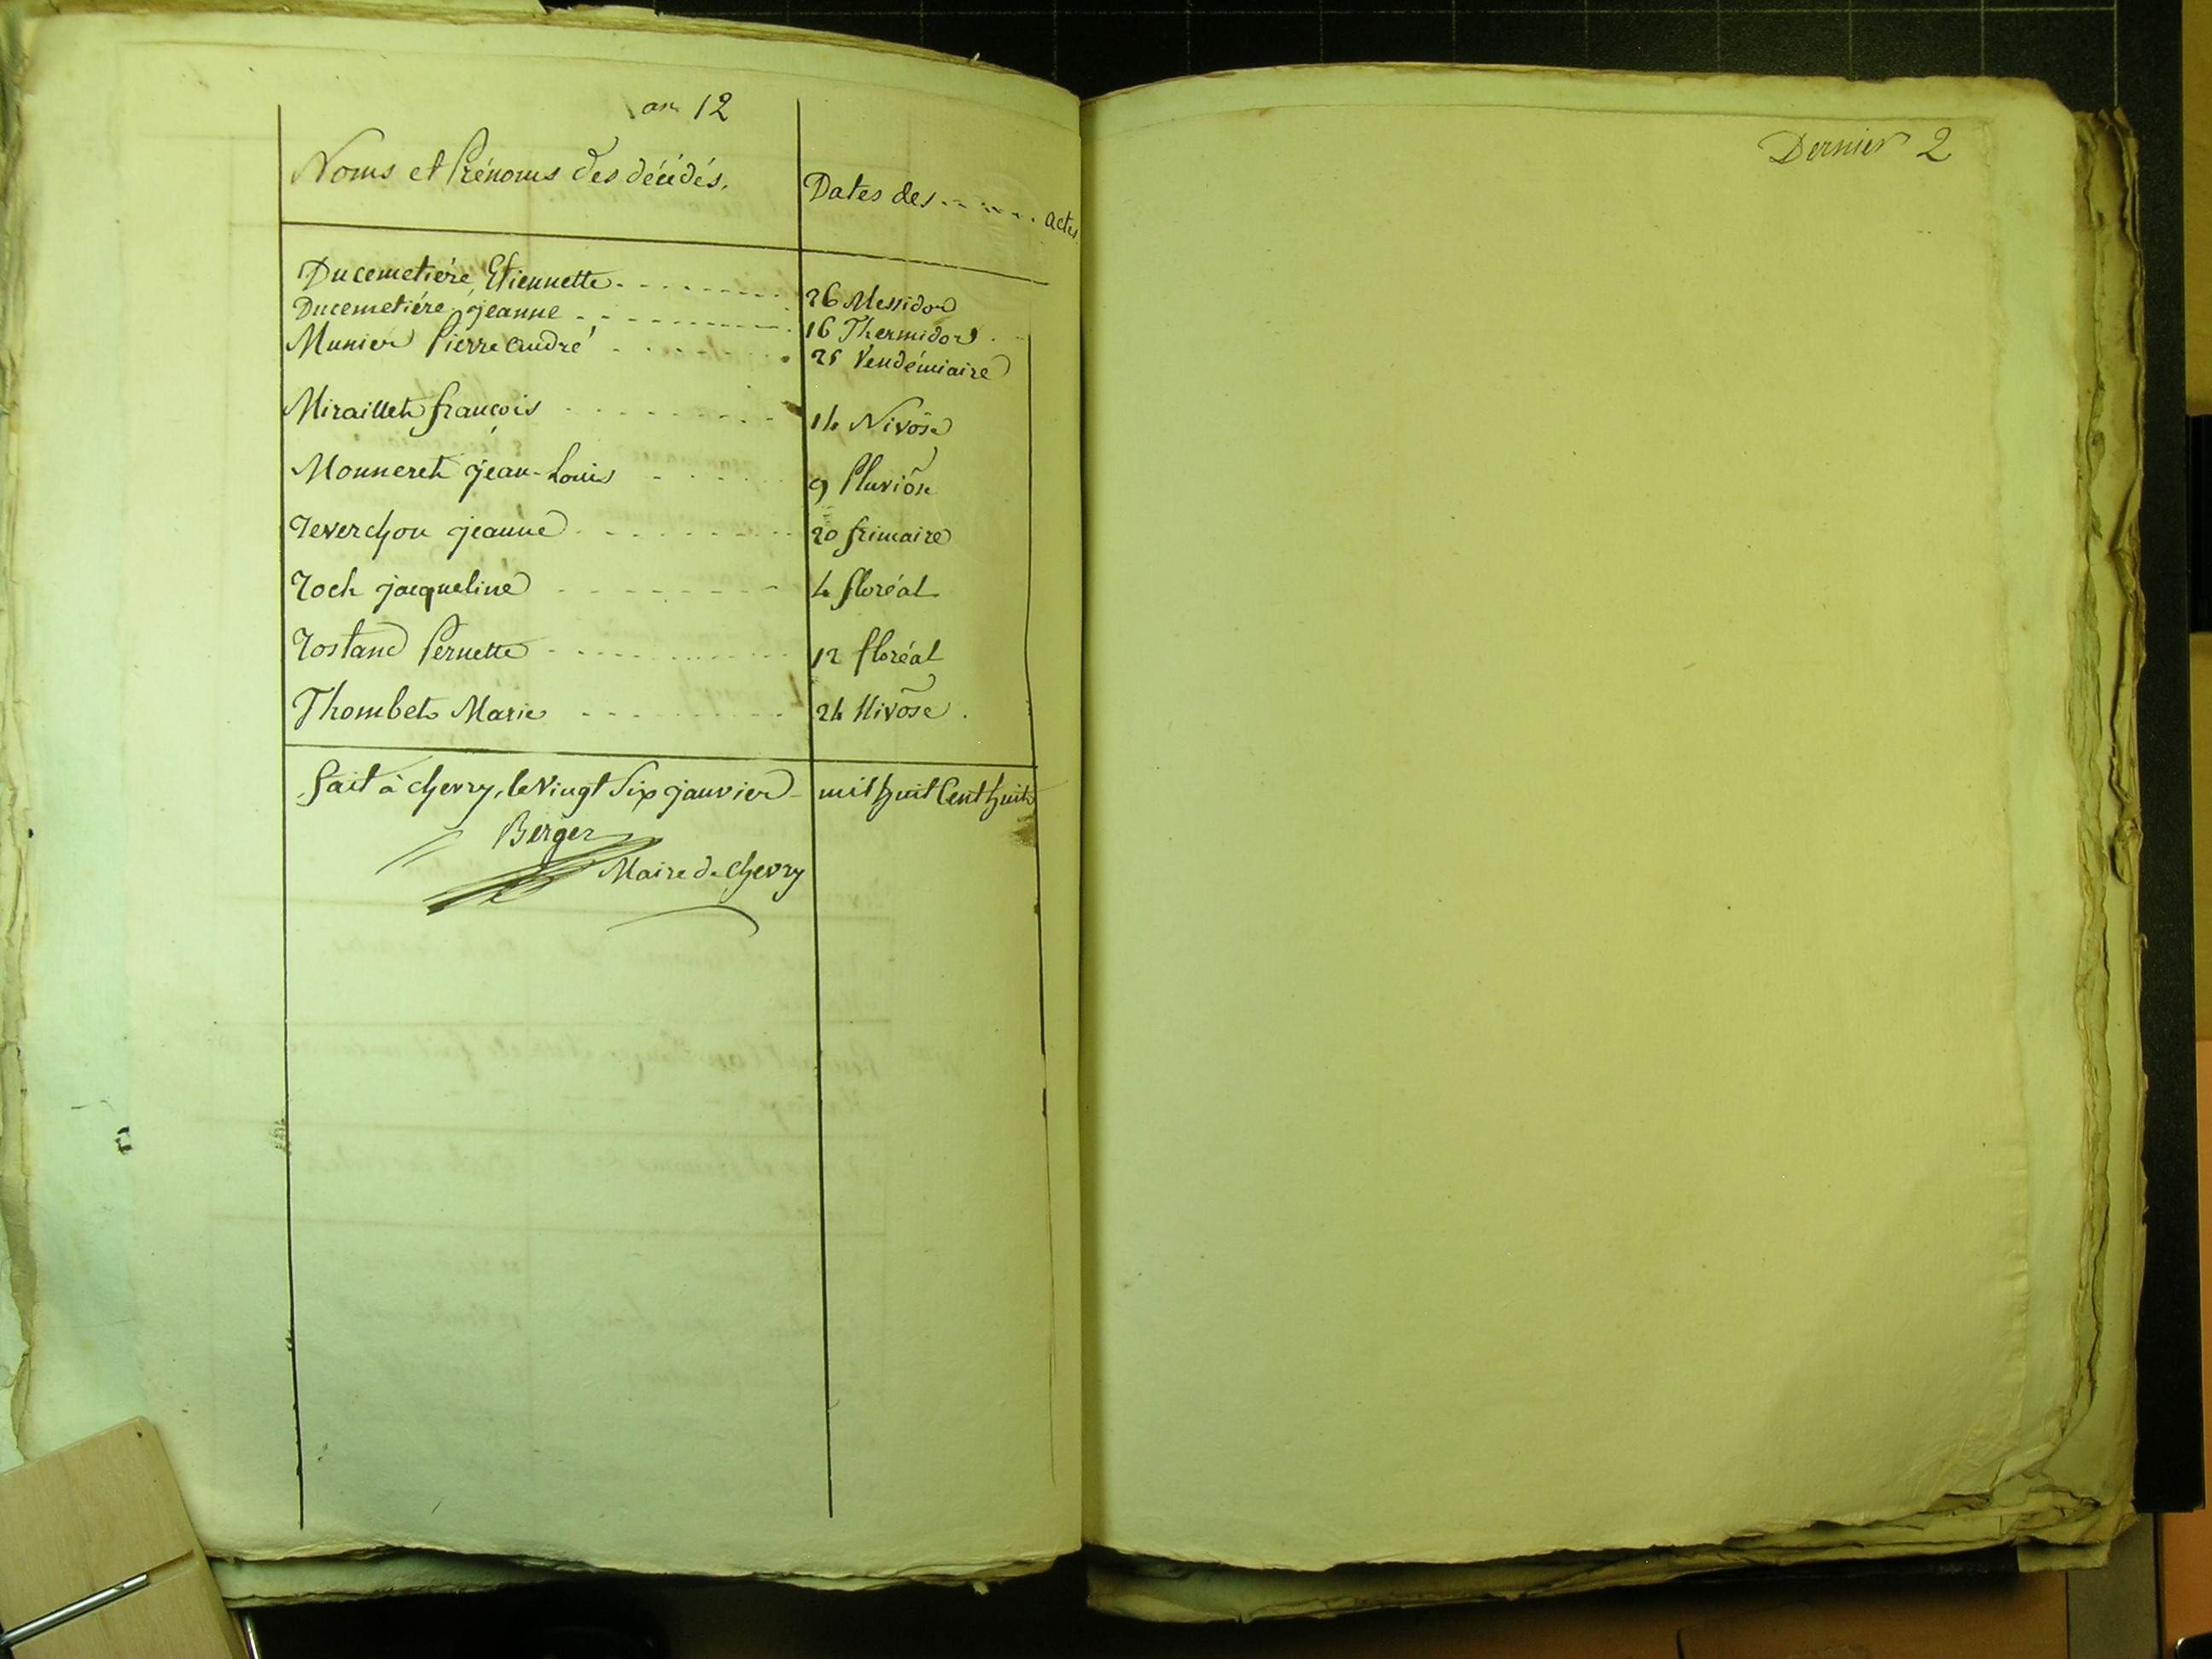 an 12
Noms et Prénoms des décédés. Dates des actes
Ducemetiére, Etiennette 26 Messidor
Ducemetiére, jeanne 16 Thermidor
Munier Pierre andré 25 Vendémiaire
Miraillet françois 14 Nivôse
Monneret jean-Louis 9 Pluviôse
Reverchon jeanne 20 frimaire
Roch jacqueline 4 floréal
Rostand Pernette 12 floréal
Thombet Marie 24 Nivôse.
fait à chevry, le Vingt Six janvier mil huit Cent huit
Berger
Maire de Chevry
Dernier 2